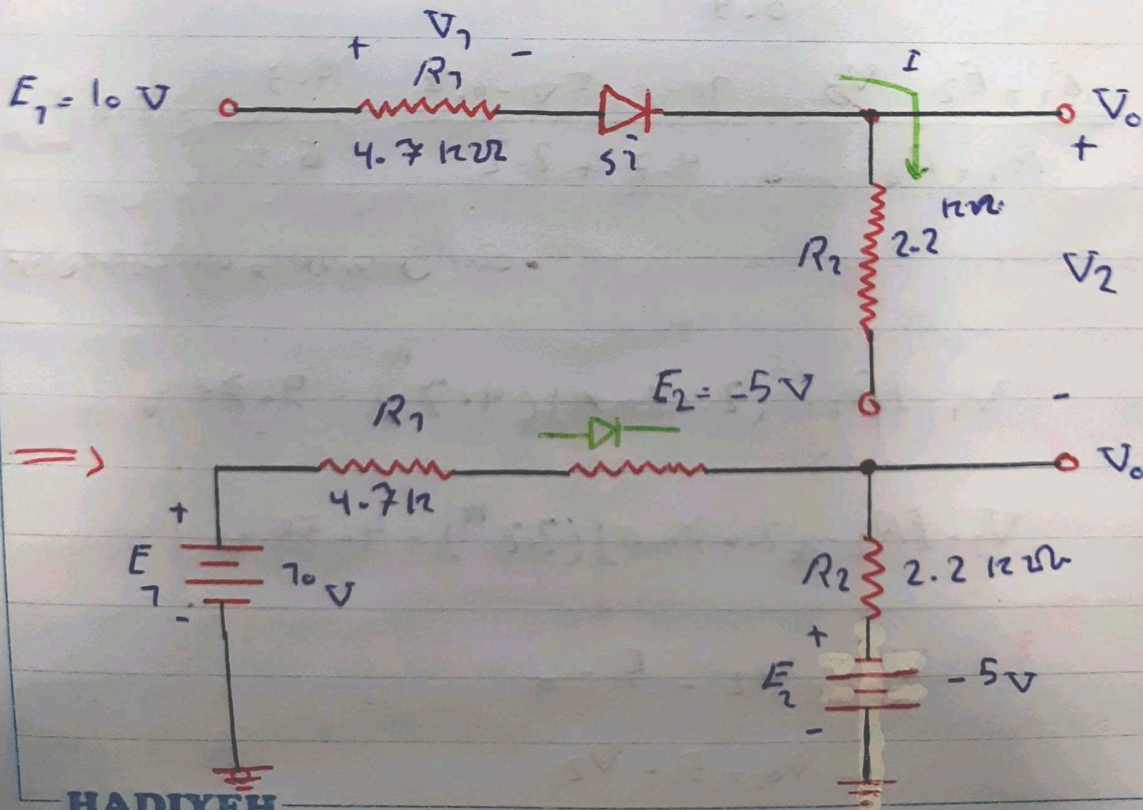 + V1 -
R1
E1 = 10 V
4.7 kΩ
Si
I
Vo
+
R2 2.2 kΩ
V2
E2 = -5 V
-
R1
=>
4.7 k
Vo
+
E1
10 V
-
R2 2.2 kΩ
+
E2 -5 V
-
HADIYEH